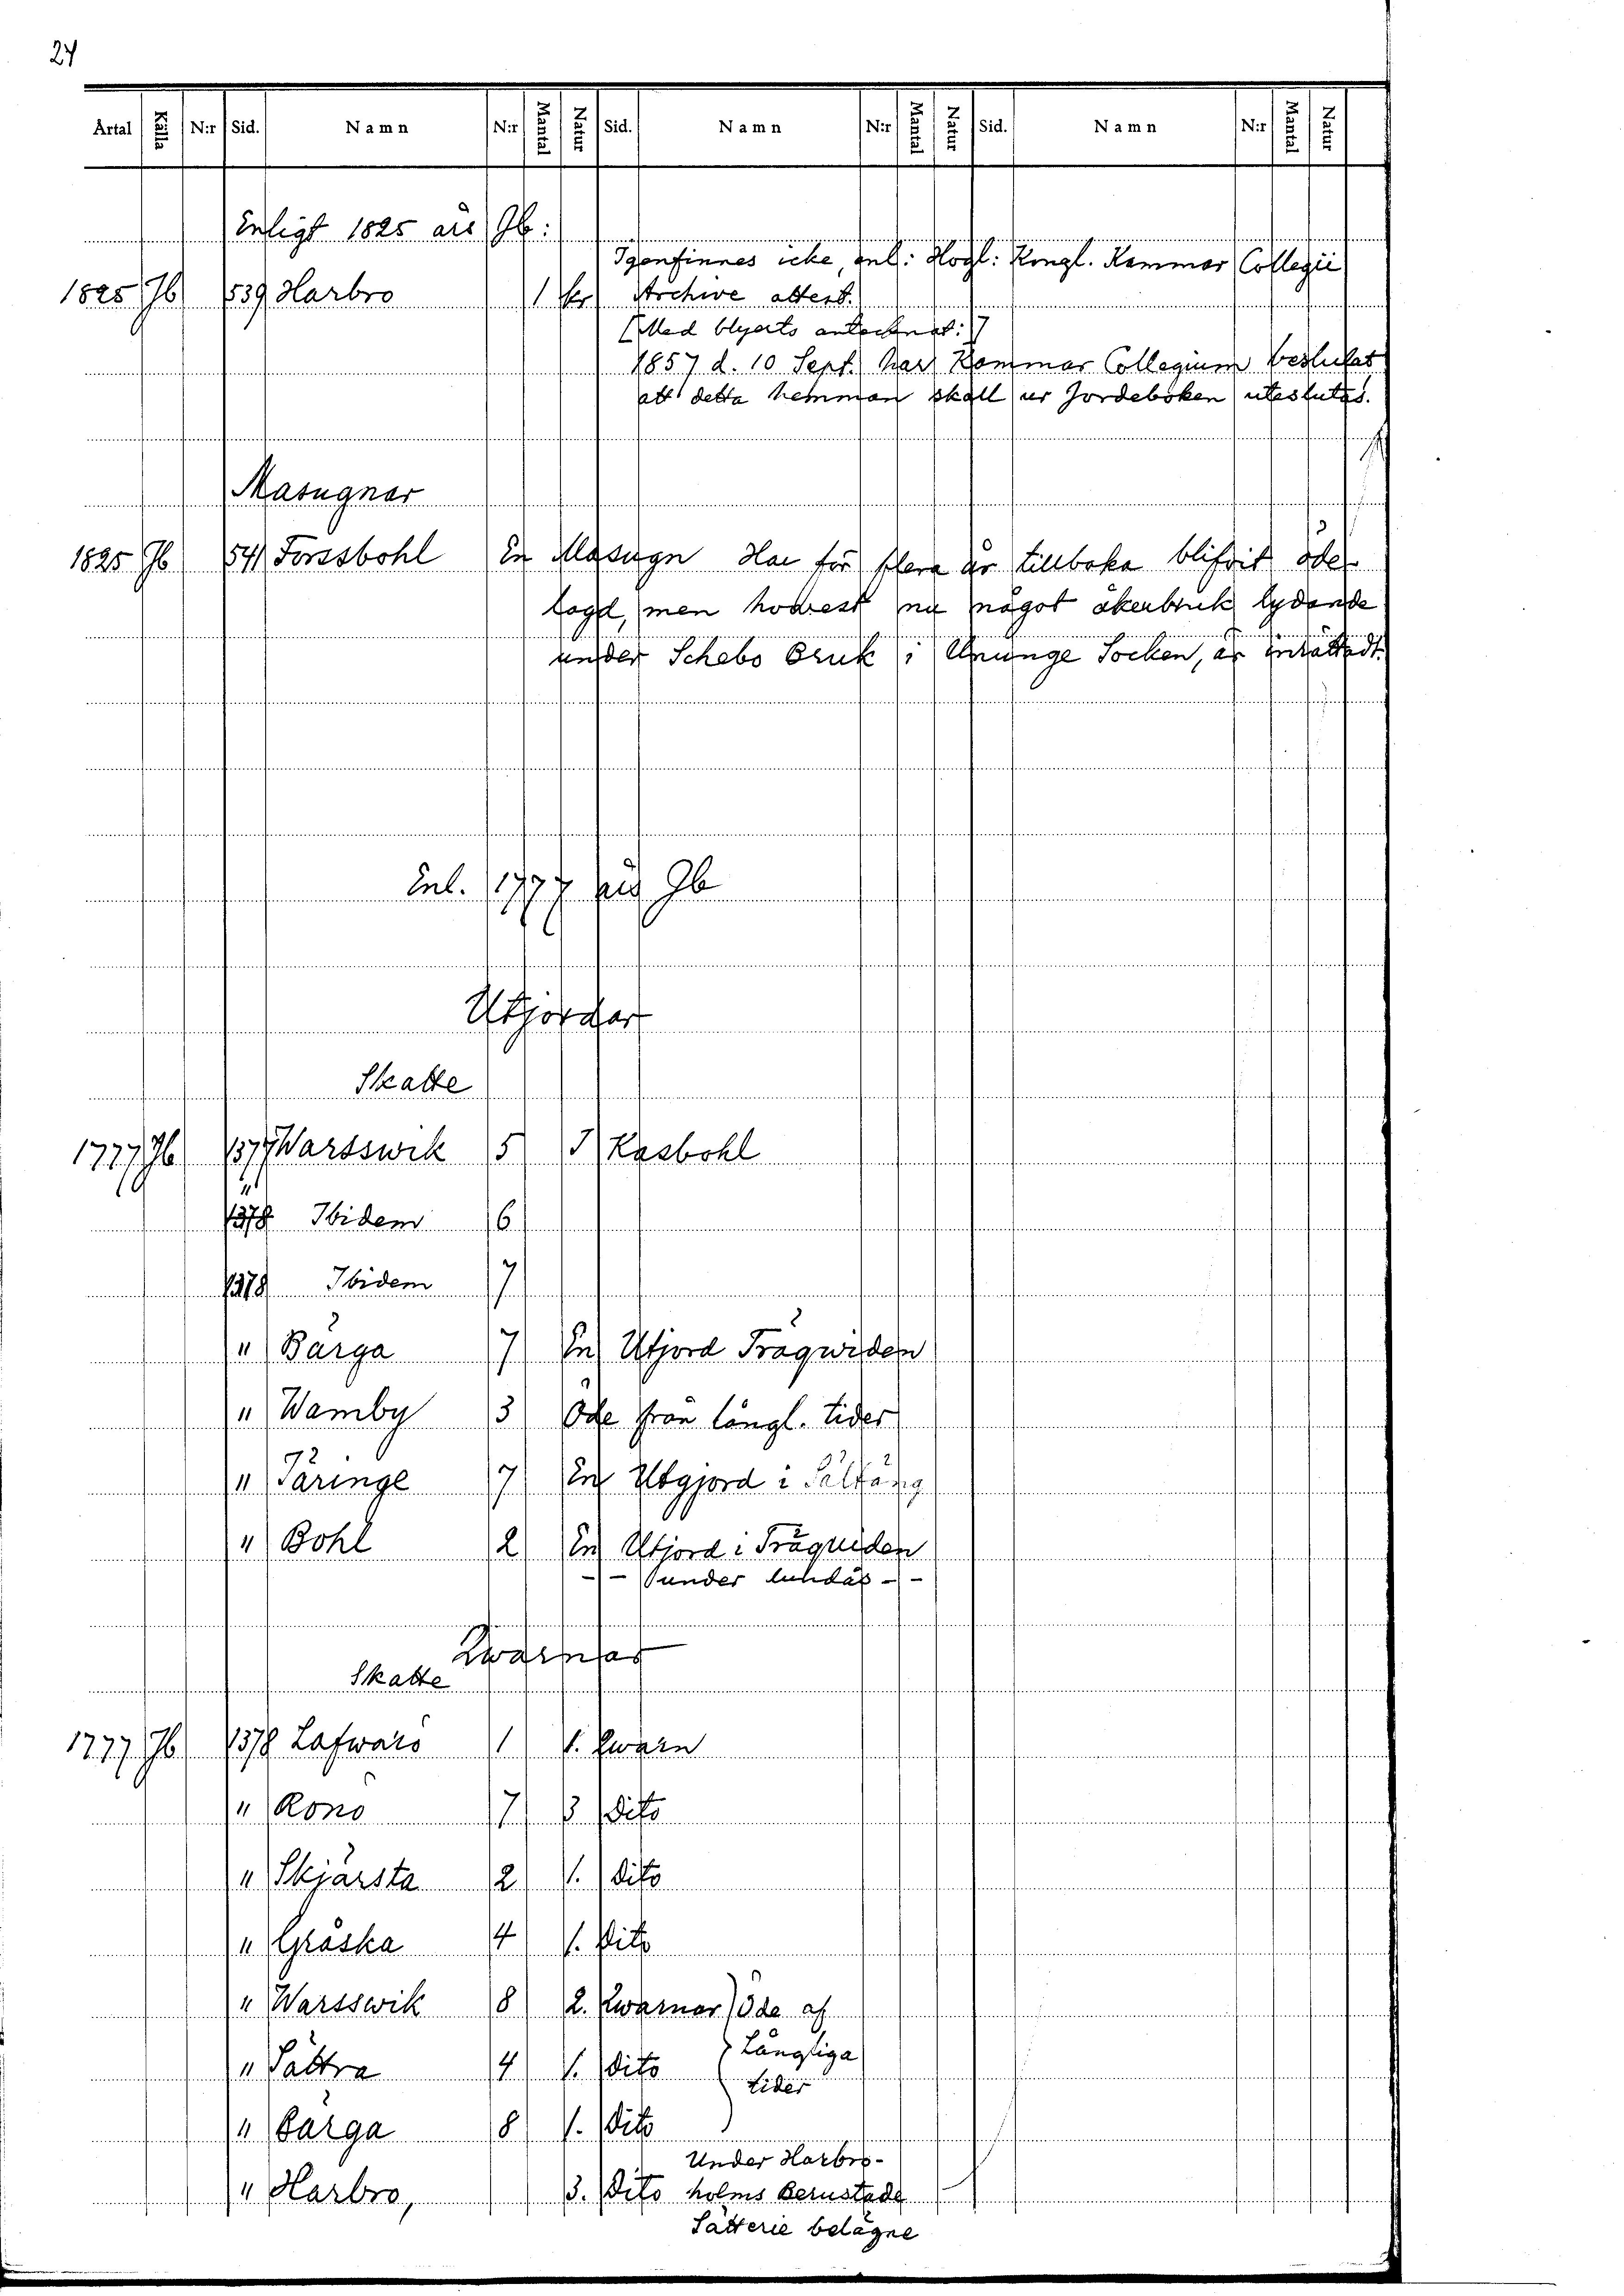 24
Årtal Källa N:r Sid. Namn N:r Mantal Natur Sid. Namn N:r Mantal Natur Sid. Namn N:r Mantal Natur
Enligt 1825 års Jb:
Igenfinnes icke, enl: Högl: Kongl. Kammar Collegii
1825 Jb 539 Harbro 1 kr Archive attest.
[Med blyerts antecknat:]
1857 d. 10 Sept. har Kammar Collegium beslutat
att detta hemman skall ur Jordeboken uteslutas.
Masugnar
1825 Jb 541 Forssbohl En Masugn Har för flera år tillbaka blifvit öde
lagd, men hvarest nu något åkerbruk lydande
under Schebo Bruk i Ununge Socken, är inrättadt.
Enl. 1777 års Jb
Utjordar
Skatte
1777 Jb 1377 Warsswik 5 I Kasbohl
1378 Ibidem 6
1378 Ibidem 7
" Bärga 7 En Utjord Trägwiden
" Wamby 3 Öde från långl. tider
" Täringe 7 En Utgjord i
" Bohl 2 En Utjord i Träquiden
- - under - -
Qwarnar
Skatte
1777 Jb 1378 Lafwarö 1 1. Qwarn
" Rönö 7 3 Dito
" Skjärsta 2 1. Dito
" Gråska 4 1. Dito
" Warsswik 8 2. Qwarnar Öde af
Långliga
" Sättra 4 1. Dito
tider
" Bärga 8 1. Dito
Under Harbro-
" Harbro, 3. Dito holms Berustade
Sätterie belägne